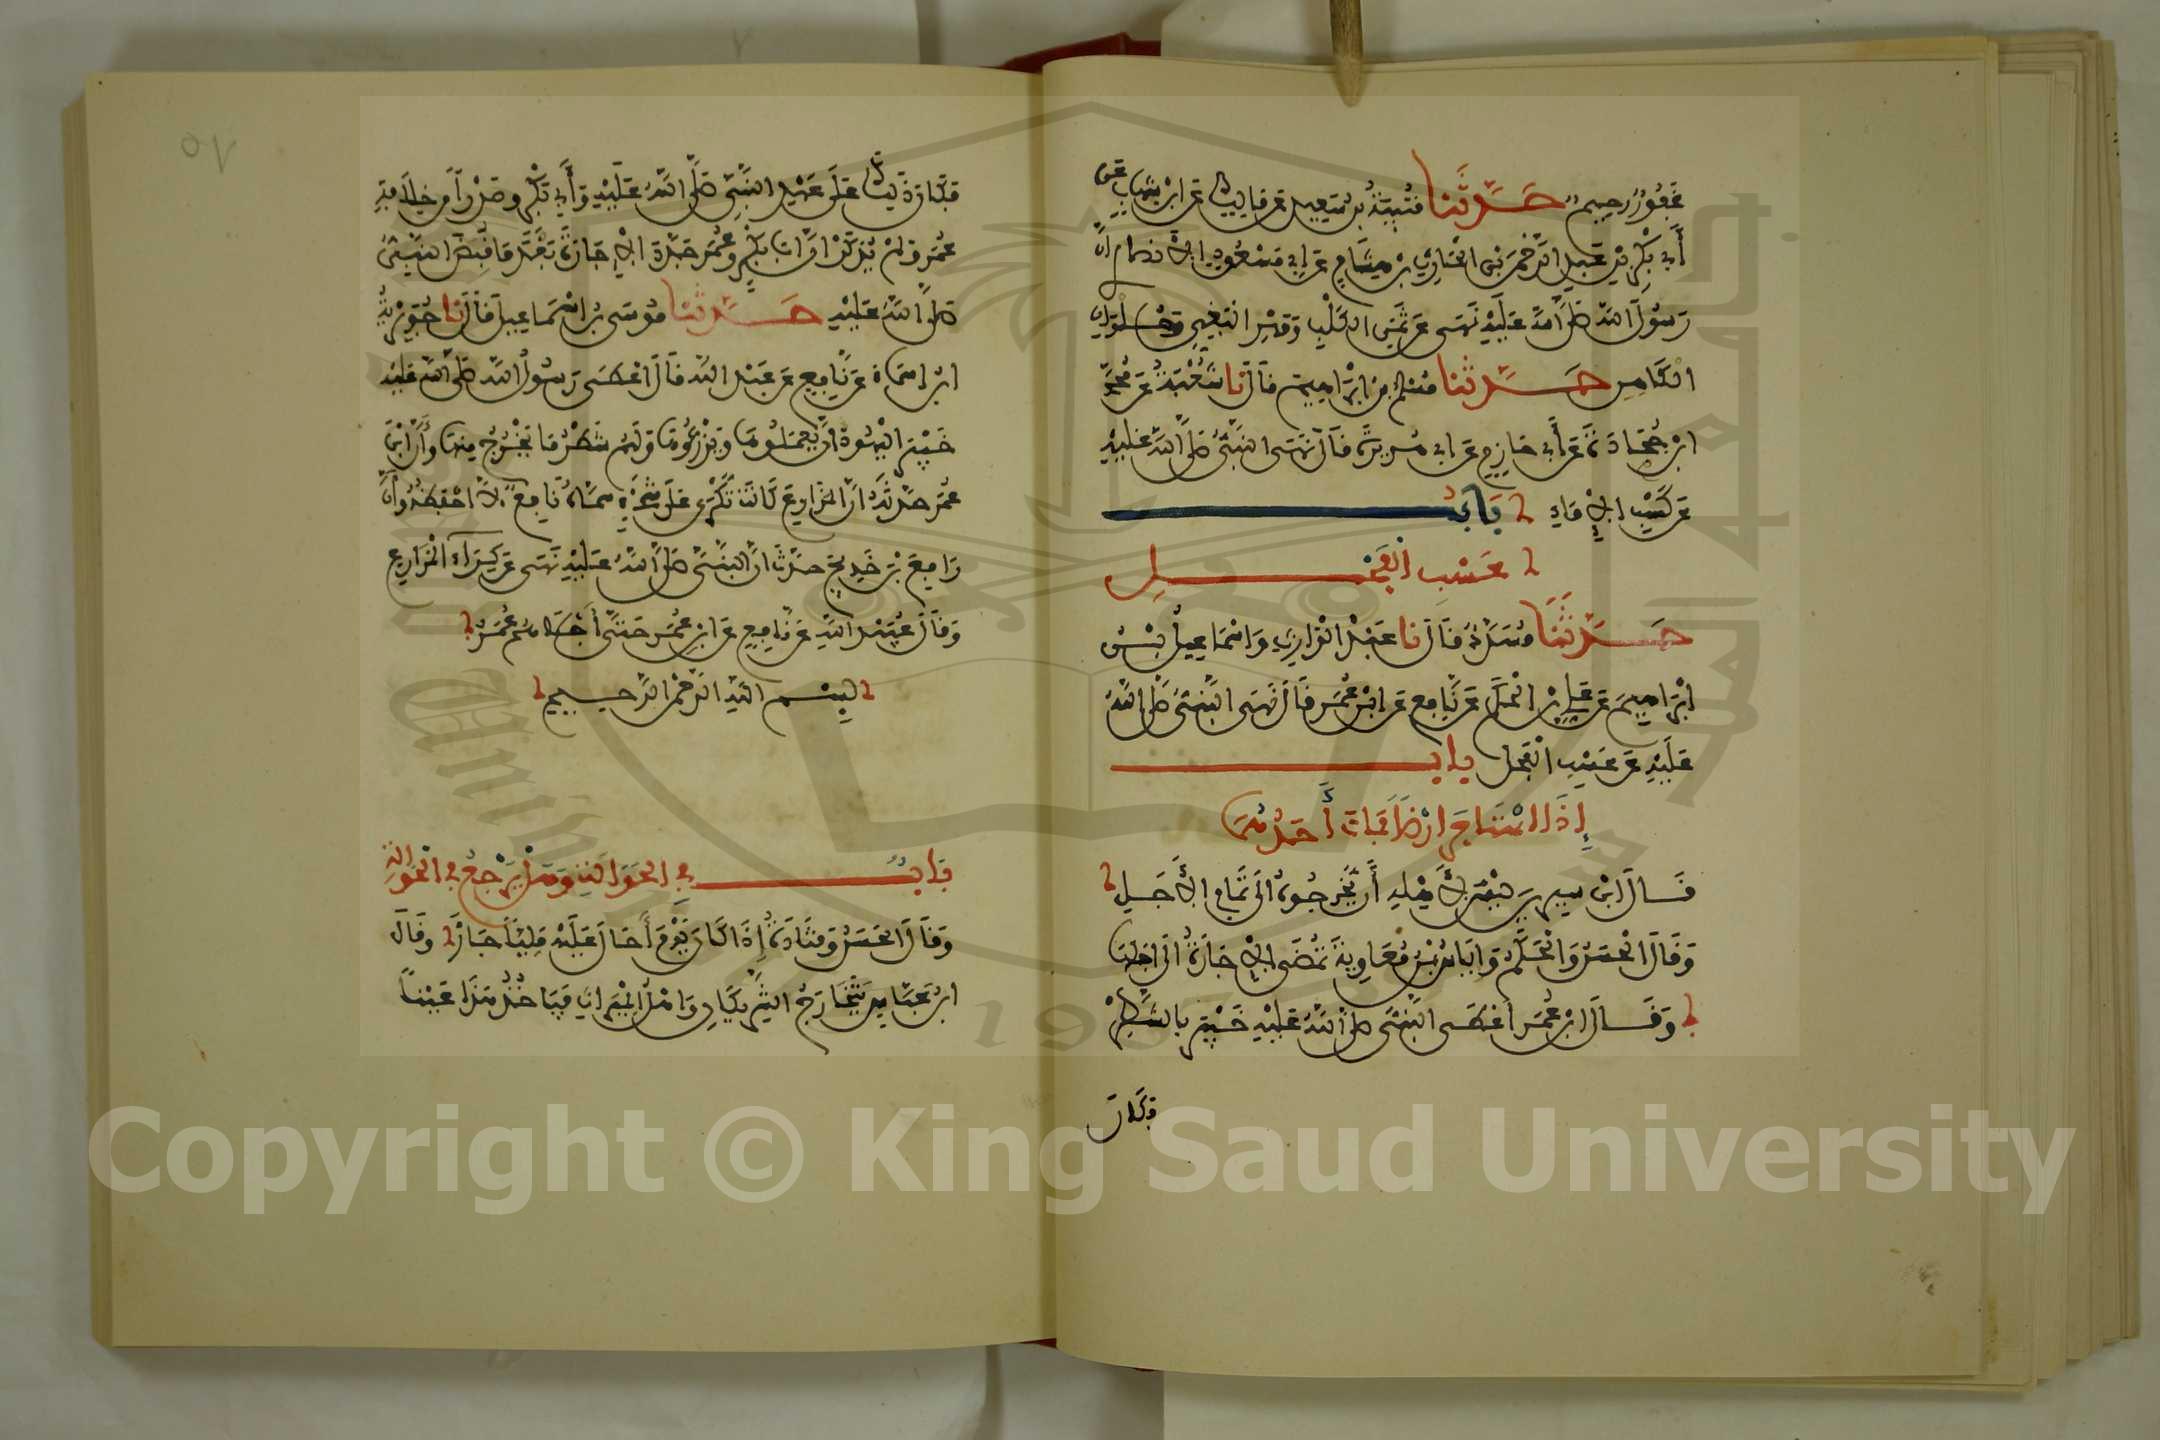 غَفُورٌ رحيم حَدَّثَنا قُتَيْبَةُ بن سَعِيدٍ عن مالك عن ابن شهاب عن
أَبِي بَكْرِ بنِ عَبدِ الرَّحْمَنِ بنِ الحارث بن هِشَامٍ عن أبي مَسْعُودٍ الأنصاري أنَّ
رَسُولَ الله صلى الله عليه نَهَى عن ثَمَنِ الكَلْبِ وَمَهْرِ البَغِيِّ وَحُلْوَانِ
الكَاهِنِ حَدَّثنا مُسْلم بن إِبْرَاهِيمَ قَالَ نا شُعْبَةُ عَن مُحمَّد
ابن جُحَادَةَ عَن أَبي حَازِمٍ عَن أبي هُريرة قَالَ نَهَى النَّبيُّ صلى الله عليهِ
عَن كَسْبِ الإِمَاءِ بَابُ
عَسْبِ الفَحْلِ
حَدَّثَنَا مُسَدَّدٌ قَالَ نا عَبْدُ الوَارِثِ وَإسْمَاعِيلُ بْنُ
إبْرَاهِيمَ عَن عَلِيِّ بنِ الحَكَمِ عَن نَافِعٍ عَن ابْنِ عُمَرَ قَالَ نَهَى النَّبِيُّ صلى اللهُ
عَلَيْهِ عَن عَسْبِ الفَحْلِ باب
إِذَا اسْتَاجَرَ ارْضًا فَمَاتَ أَحَدُهُمَا
قَالَ ابْنُ سِيرِينَ لَيْسَ لِأَهْلِهِ أَنْ يُخْرِجُوهُ الَى تَمَامِ الأَجَلِ
وَقَالَ الحَسَنُ وَالحَكَمُ وَإيَاسُ بْنُ مُعَاوِيَةَ تُمْضَى الإجَارَةُ الَى أجَلِهَا
وَقَالَ ابْنُ عُمَرَ أَعْطَى النَّبِيُّ صلى اللهُ عَلَيْهِ خَيْبَرَ بِالشَّطْرِ
فكان
٥٧
فكان ذَلِكَ عَلَى عَهْدِ النَّبِيِّ صَلَّى اللهُ عَلَيْهِ وَأَبِي بَكْرٍ وصَدْرًا مِن خِلَافَةِ
عُمَرَ وَلم يُذْكَرْ انَّ ابا بَكْرٍ وعُمَرَ جَدَّدَا الإجَارَةَ بَعْدَ مَا قُبِضَ النَّبِيُّ
صلى اللهُ عَلَيْهِ حَدَّثَنَا مُوسَى بْنُ اسْمَاعِيلَ قَالَ نا جُوَيْرِيَةُ
ابْنُ اسْمَاءَ عَن نَافِعٍ عَن عَبْدِ اللهِ قَالَ اعْطَى رَسُولُ اللهِ صَلَّى اللهُ عليه
خَيْبَرَ اليَهُودَ انْ يَعْمَلُوهَا وَيَزْرَعُوهَا وَلَهُم شَطْرُ مَا يَخْرُجُ مِنهَا وَأَنَّ ابْنَ
عُمَرَ حَدَّثَهُ انَّ المَزَارِعَ كَانَتْ تُكْرَى عَلَى شَيْءٍ سَمَّاهُ نَافِعٌ لاَ احْفَظُهُ وَانَّ
رَافِعَ بْنَ خَدِيجٍ حَدَّثَ انَّ النَّبِيَّ صلى اللهُ عَلَيْهِ نَهَى عَن كِرَاءِ المَزَارِعِ
وَقَالَ عُبَيْدُ اللهِ عَن نَافِعٍ عَن ابْنِ عُمَرَ حَتَّى أَجْلَاهُم عُمَرُ
بِسْم اللهِ الرَّحْمَنِ الرَّحِيمِ
بَابٌ فِي الحَوَالَةِ وَهَلْ يَرْجِعُ فِي الحَوَالَةِ
وَقَالَ الحَسَنُ وَقَتَادَةُ إِذَا كَانَ يَوْمَ أَحَالَ عَلَيْهِ مَلِيًّا جَازَ وَقَالَ
ابْنُ عَبَّاسٍ يَتَخَارَجُ الشَّرِيكَانِ وَاهْلُ المِيرَاثِ فَيَاخُذُ هَذَا عَيْنًا
Copyright © King Saud University